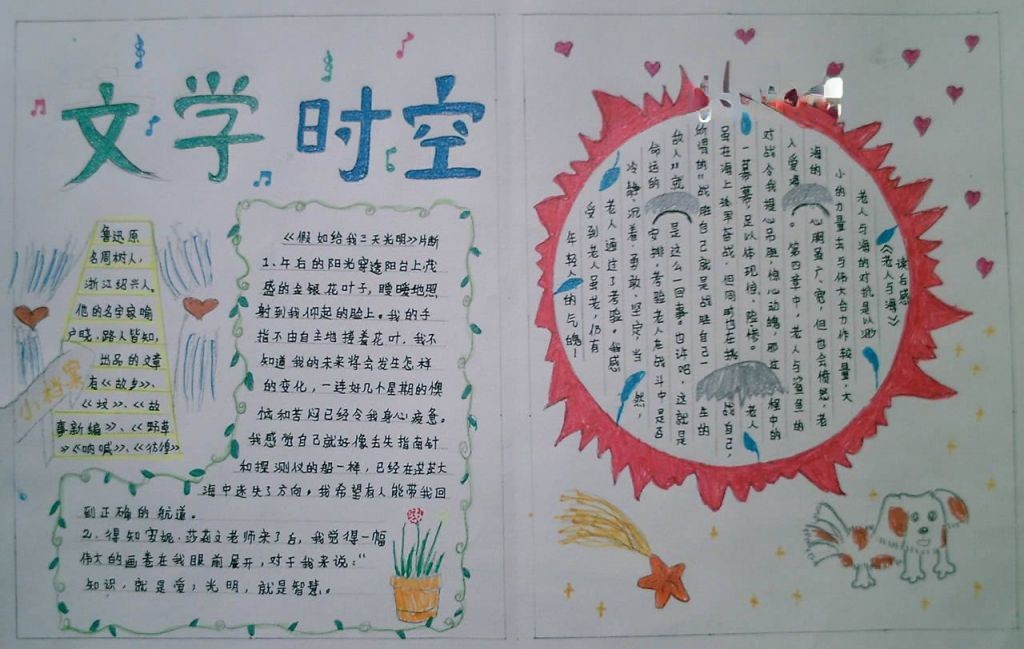 文学时空
鲁迅原
名周树人,
浙江绍兴人。
他的名字家喻
户晓,路人皆知,
出品的文章
有《故乡》、
《坟》、《故
事新编》、《野草
》《呐喊》、《彷徨》
小档案
《假如给我三天光明》片断
1、午后的阳光穿透阳台上茂
盛的金银花叶子,暖暖地照
射到我仰起的脸上。我的手
指不由自主地搓着花叶,我不
知道我的未来将会发生怎样
的变化,一连好几个星期的懊
恼和苦闷已经令我身心疲惫。
我感觉自己就好像丢失指南针
和探测仪的船一样,已经在茫茫大
海中迷失了方向,我希望有人能带我回
到正确的航道。
2、得知安妮·莎莉文老师来了后,我觉得一幅
伟大的画卷在我眼前展开,对于我来说:“
知识,就是爱;光明,就是智慧。
读后感
《老人与海》
老人与海的对抗是以渺
小的力量去与伟大台力作较量,大
海的 心胸虽广、宽,但也会愤怒,老
人受 。第四章中,老人与鲨鱼的
对战令我提心吊胆,惊心动魄,那过程中的
一幕幕,足以体现惊、险、惨。 老人
虽在海上孤军奋战,但同时也在挑战自己,
所谓的“战胜自己就是战胜自己一生的
敌人”就是这么一回事。也许吧,这就是
命运的安排,考验老人在战斗中是否
冷静、沉着、勇敢、坚定,当然,
老人通过了考验。每感
受到老人虽老,仍有
年轻人的气魄!